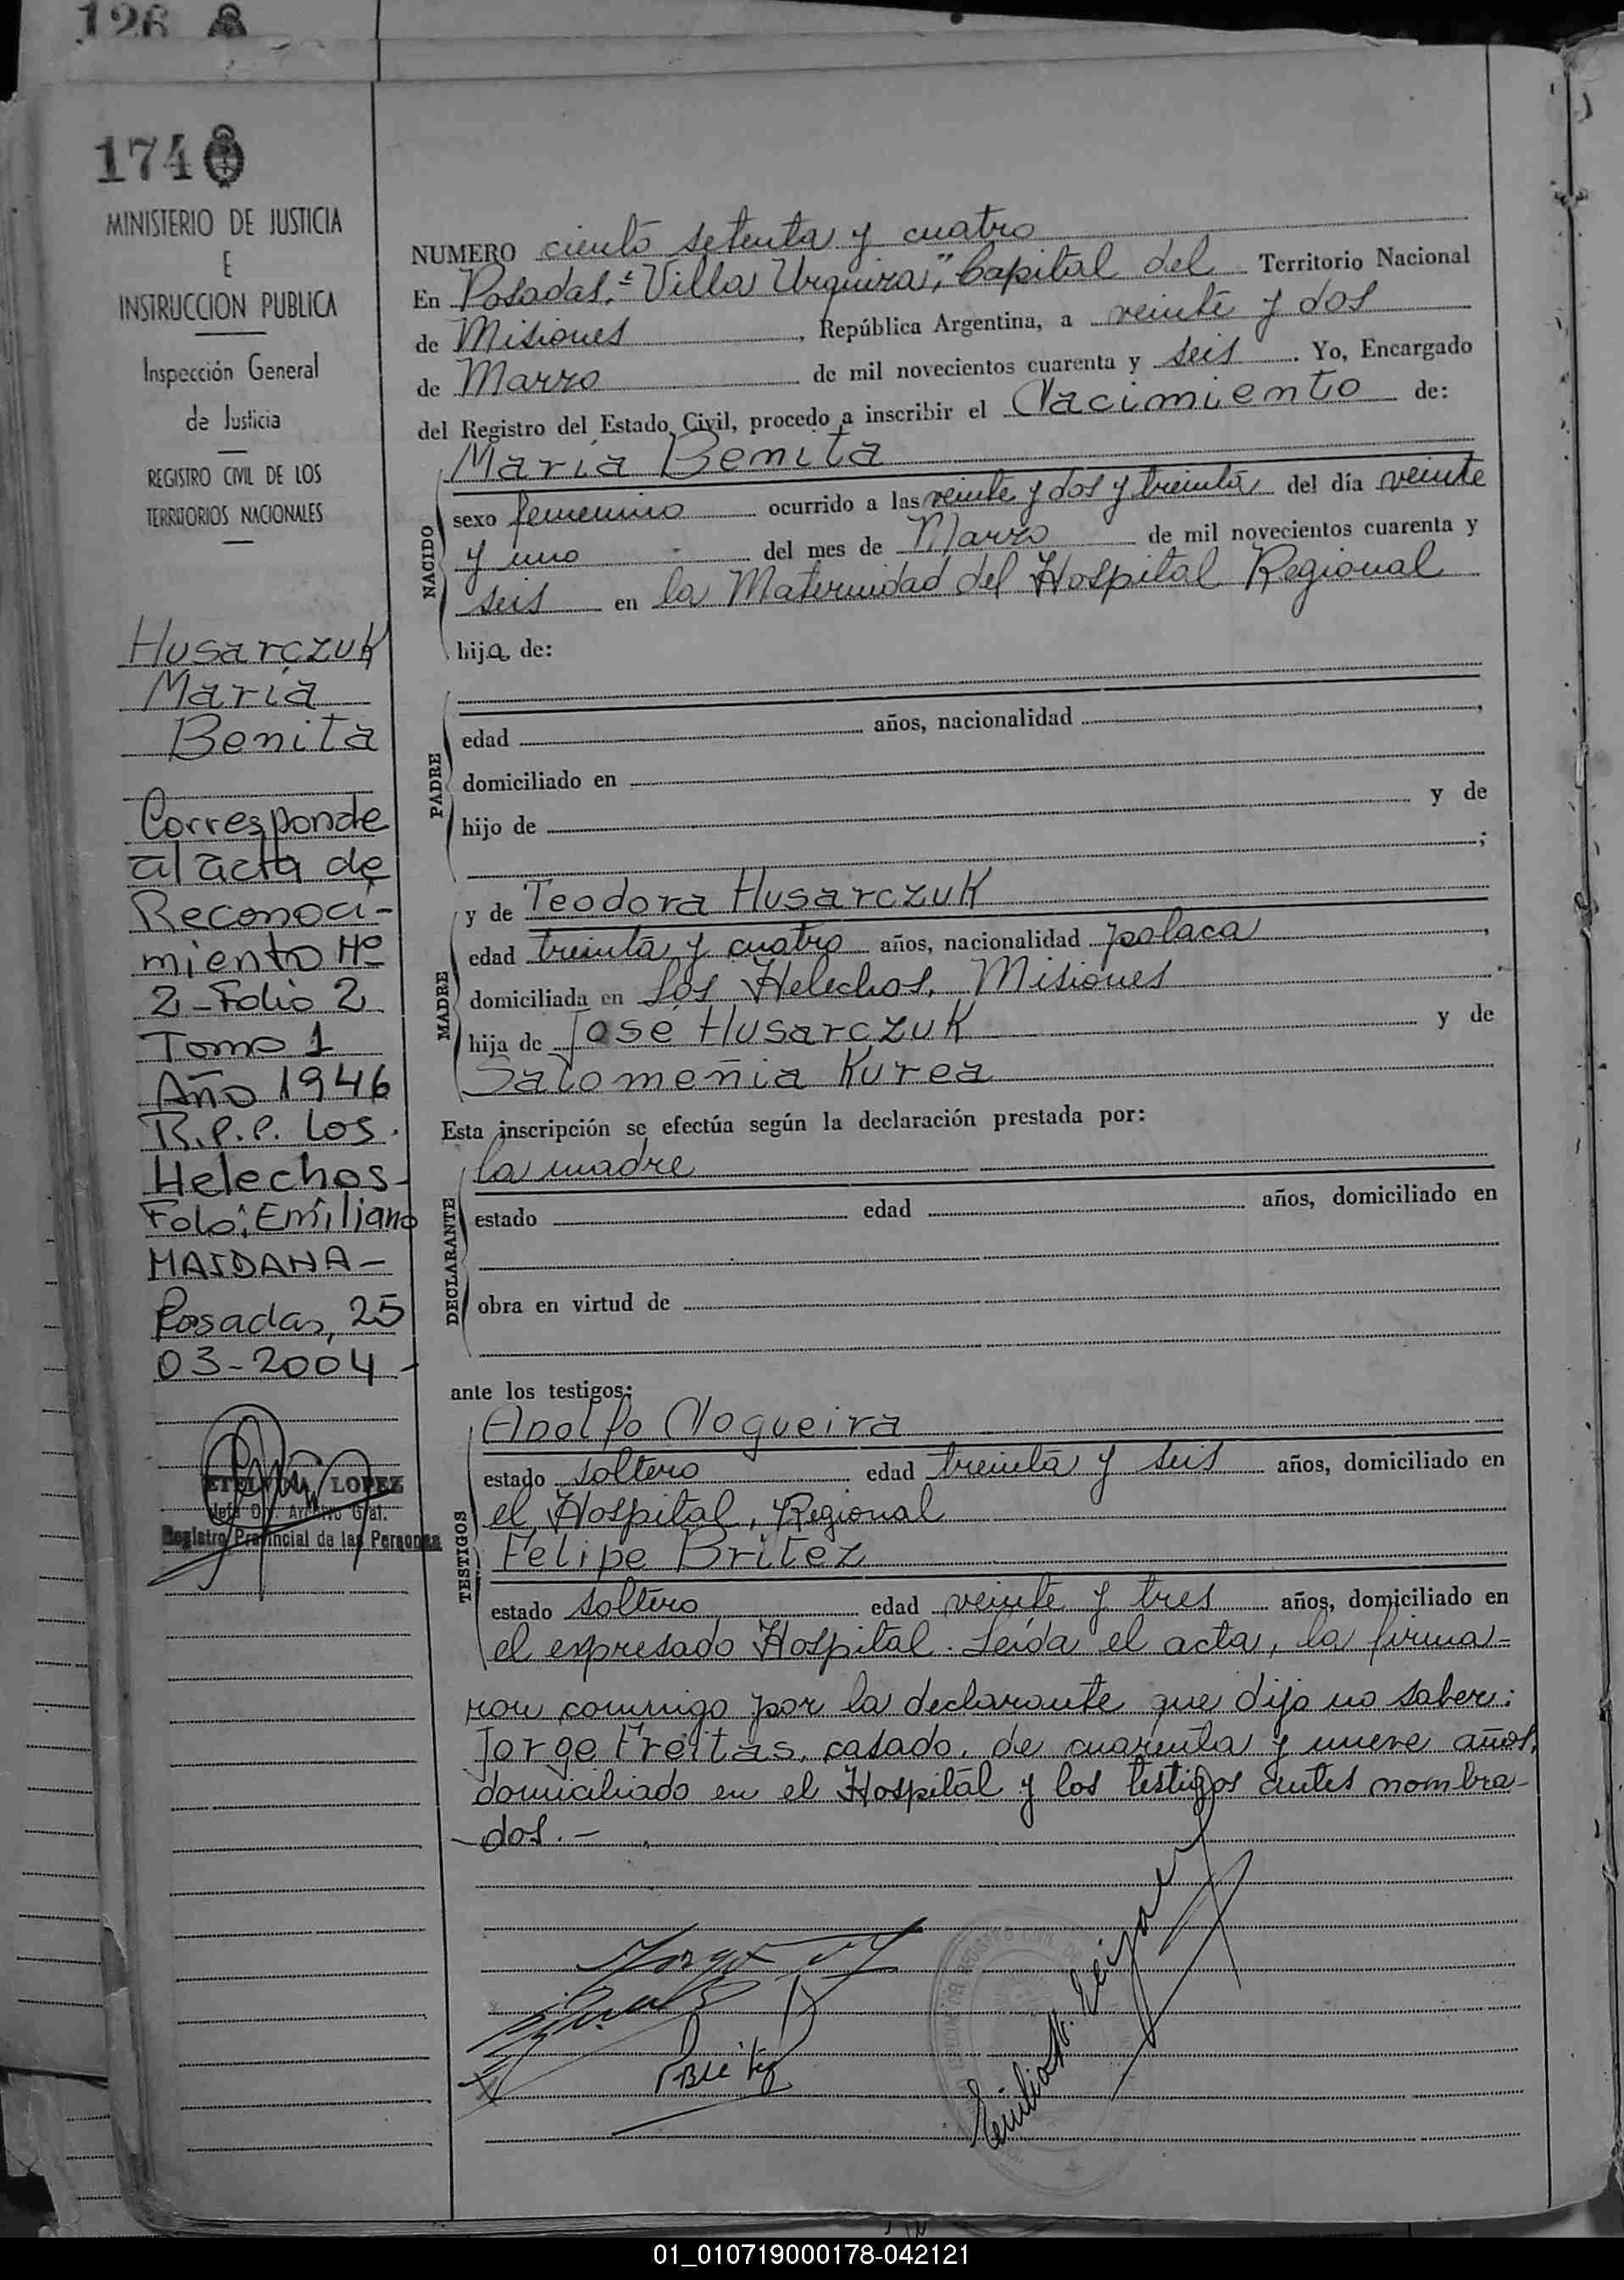 126
174
MINISTERIO DE JUSTICIA
E
INSTRUCCION PUBLICA
Inspección General
de Justicia
REGISTRO CIVIL DE LOS
TERRITORIOS NACIONALES
Husarczuk
María
Benita
Corresponde
al acta de
Reconoci-
miento Nº
2-Folio 2
Tomo 1
Año 1946
R.P.P. Los
Helechos-
Emiliano
MAIDANA-
Posadas, 25
03-2004-
LOPEZ
Registro Provincial de las Personas
NUMERO ciento setenta y cuatro
En Posadas, "Villa Urquiza", Capital del Territorio Nacional
de Misiones, República Argentina, a veinte y dos
de Marzo de mil novecientos cuarenta y seis. Yo, Encargado
del Registro del Estado Civil, procedo a inscribir el Nacimiento de:
NACIDO
María Benita
sexo femenino ocurrido a las veinte y dos y treinta del día veinte
y uno del mes de Marzo de mil novecientos cuarenta y
seis en la Maternidad del Hospital Regional
hija de:
PADRE
edad años, nacionalidad ,
domiciliado en
hijo de y de
;
MADRE
y de Teodora Husarczuk
edad treinta y cuatro años, nacionalidad polaca ,
domiciliada en Los Helechos, Misiones
hija de José Husarczuk y de
Salomeñia Kurea
Esta inscripción se efectúa según la declaración prestada por:
DECLARANTE
la madre
estado edad años, domiciliado en
obra en virtud de
ante los testigos:
TESTIGOS
Adolfo Nogueira
estado soltero edad treinta y seis años, domiciliado en
el Hospital, Regional
Felipe Britez
estado soltero edad veinte y tres años, domiciliado en
el expresado Hospital. Leída el acta, la firma-
ron conmigo por la declarante que dijo no saber:
Jorge Freitas, casado, de cuarenta y nueve años,
domiciliado en el Hospital y los testigos antes nombra-
dos.-
01_010719000178-042121